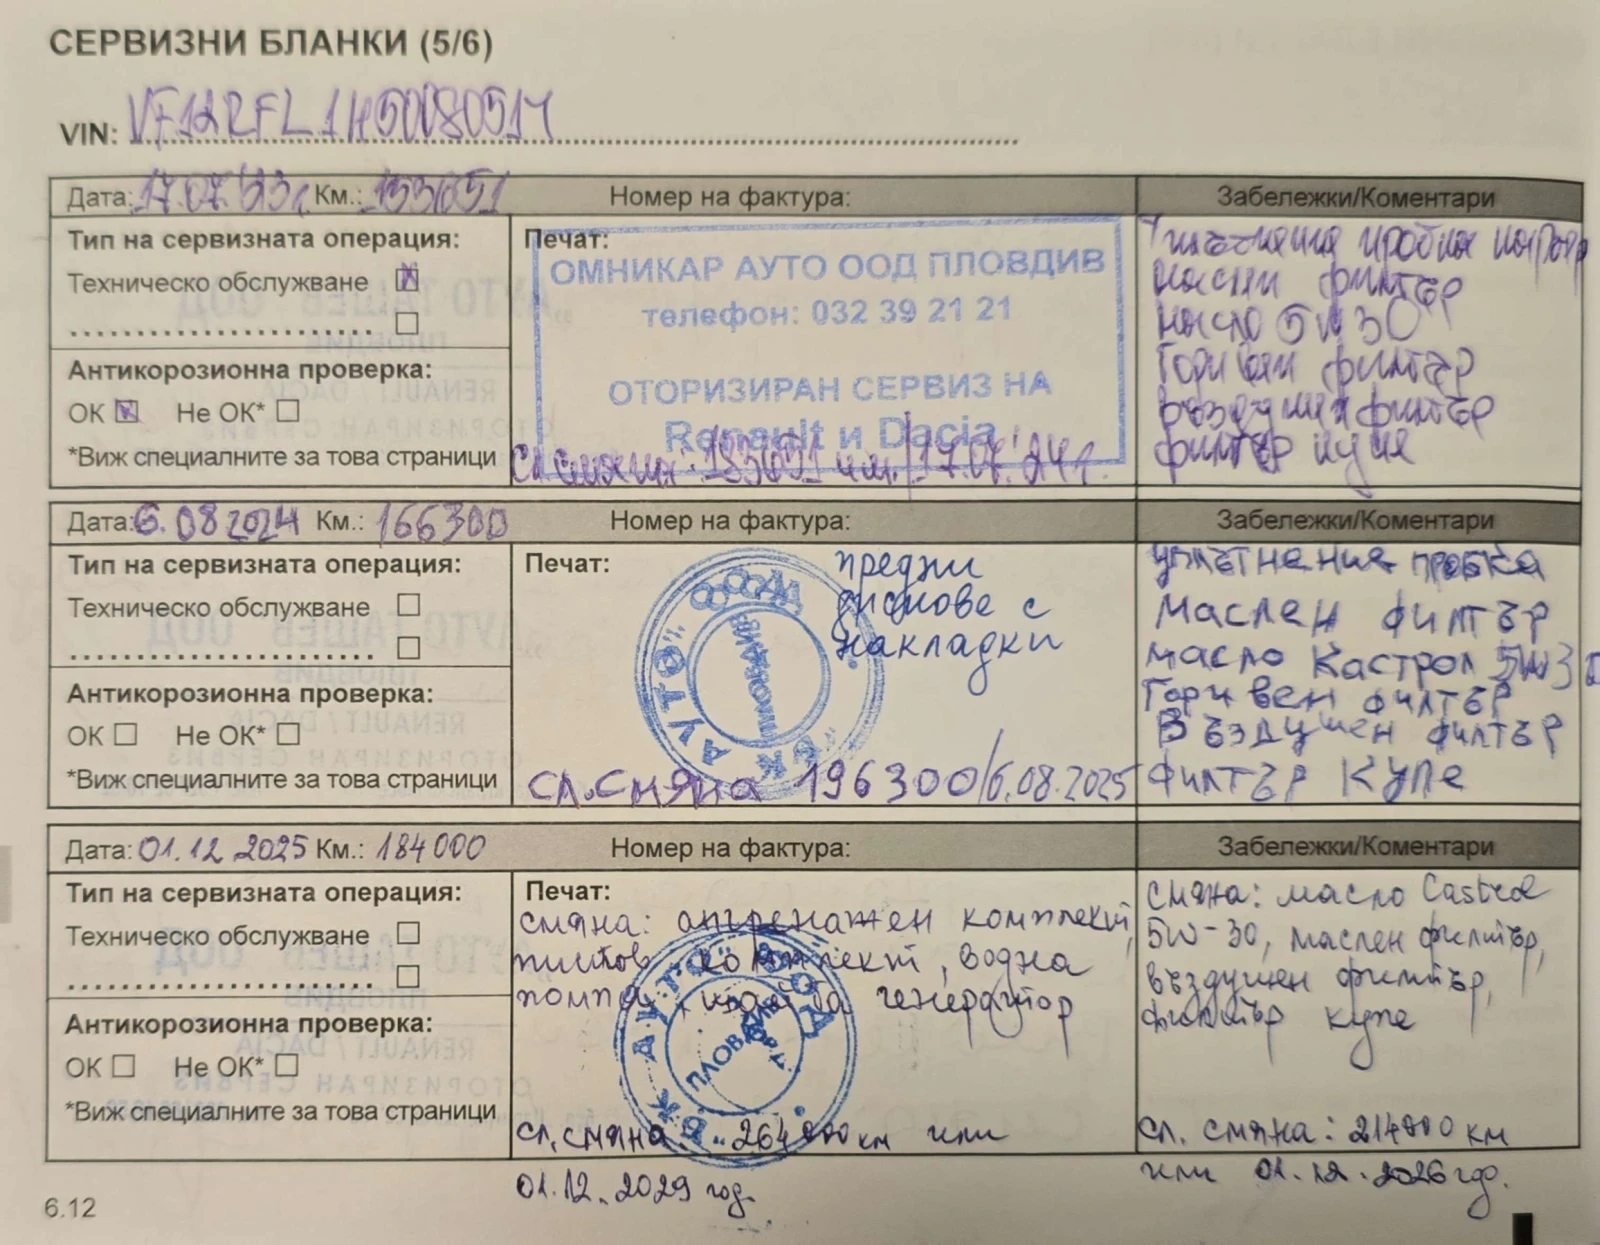 СЕРВИЗНИ БЛАНКИ (5/6)
VIN: VF12RFL1H50080514
Дата: 17.07.'23г. Км.: 153651 Номер на фактура: Забележки/Коментари
Тип на сервизната операция:
Техническо обслужване
Антикорозионна проверка:
ОК Не ОК*
*Виж специалните за това страници
Печат:
ОМНИКАР АУТО ООД ПЛОВДИВ
телефон: 032 39 21 21
ОТОРИЗИРАН СЕРВИЗ НА
Renault и Dacia
Сл. смяна: 183651 км./17.07.'24г.
пробка
маслен филтър
масло 5W30
Горивен филтър
въздушен филтър
филтър купе
Дата: 6.08 2024 Км.: 166300 Номер на фактура: Забележки/Коментари
Тип на сервизната операция:
Техническо обслужване
Антикорозионна проверка:
ОК Не ОК*
*Виж специалните за това страници
Печат:
предни
дискове с
накладки
АУТО" ООД
ПЛОВДИВ
сл. смяна 196300/6.08.2025
уплътнение пробка
маслен филтър
масло Кастрол 5W30
Горивен филтър
Въздушен филтър
Филтър Купе
Дата: 01.12 2025 Км.: 184000 Номер на фактура: Забележки/Коментари
Тип на сервизната операция:
Техническо обслужване
Антикорозионна проверка:
ОК Не ОК*
*Виж специалните за това страници
Печат:
смяна: ангренажен комплект,
пистов комплект, водна
помпа, шайба генератор
АУТО" ООД
ПЛОВДИВ
сл. смяна: 264000 км или
01.12.2029 год.
смяна: масло Castrol
5W-30, маслен филтър,
въздушен филтър,
филтър купе
сл. смяна: 214000 км
или 01.12.2026 год.
6.12